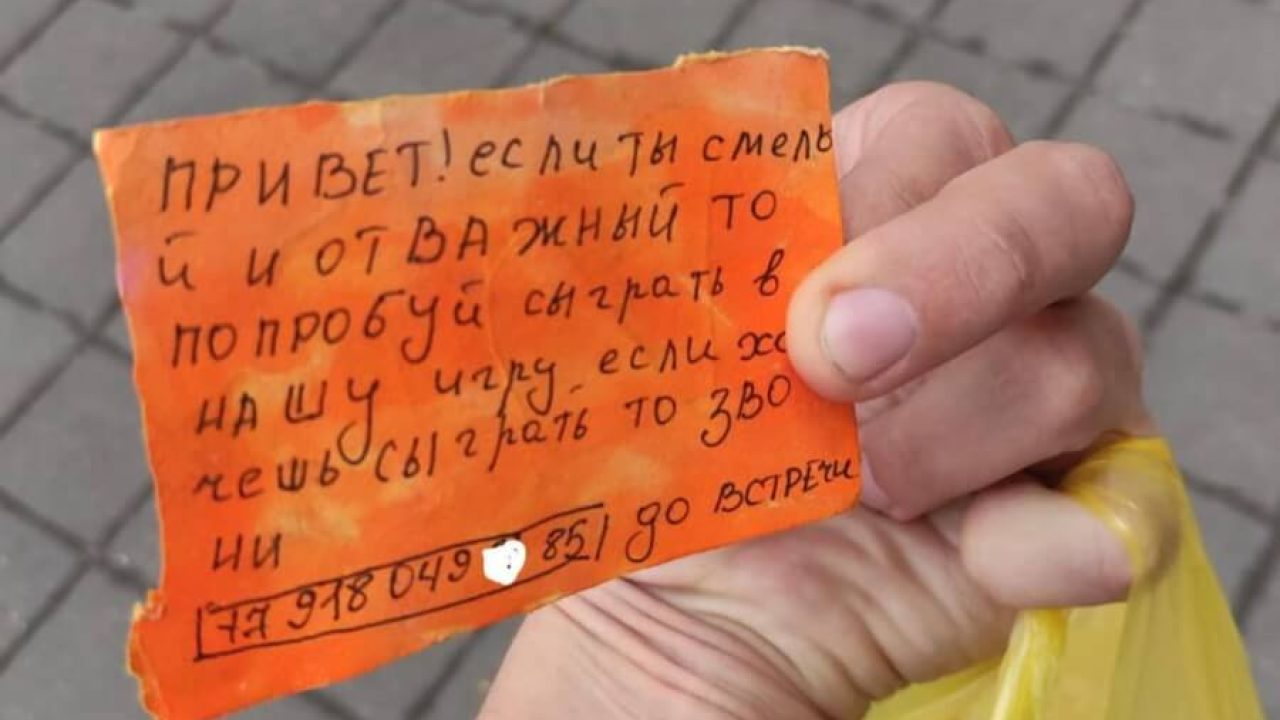 ПРИВЕТ! если ты смелы
й и ОТВАЖНЫЙ ТО
ПОПРОБУЙ сыграть в
НАШУ игру если хо
чешь сыграть то ЗВО
НИ
+7 918 049 85 до ВСТРЕЧи